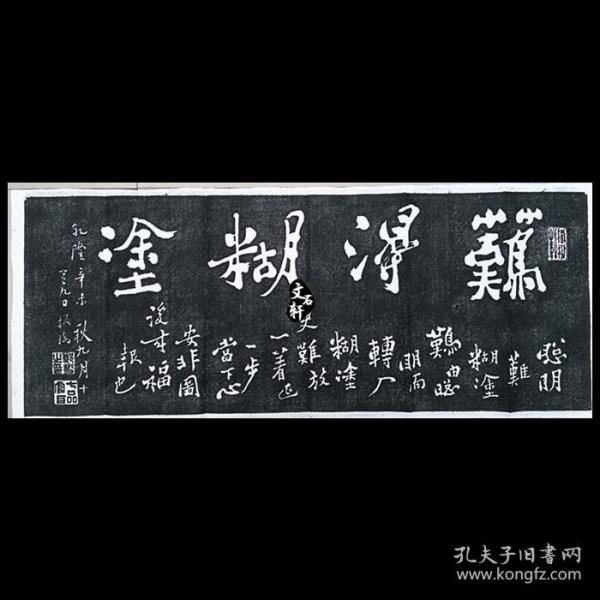 難得糊塗
聰明
難
糊塗
難由聰
明而
轉入
糊塗
更難放
一著退
一步
當下心
安非圖
後來福
報也
乾隆辛未秋九月十
有九日板橋
文石軒
孔夫子旧书网
www.kongfz.com